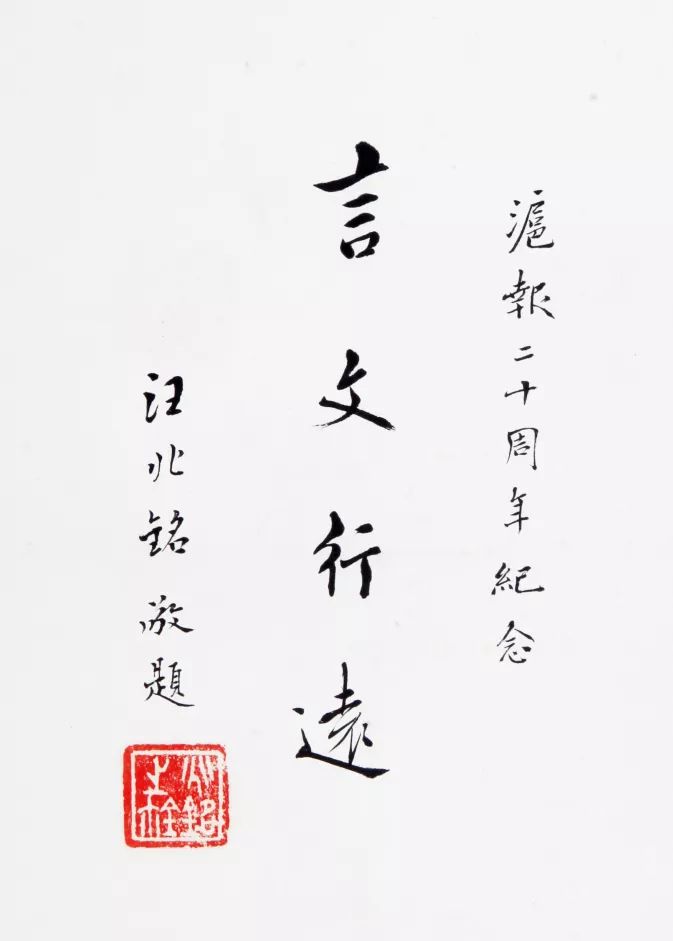 滬報二十周年紀念
言文行遠
汪兆銘敬題
兆銘之鉥